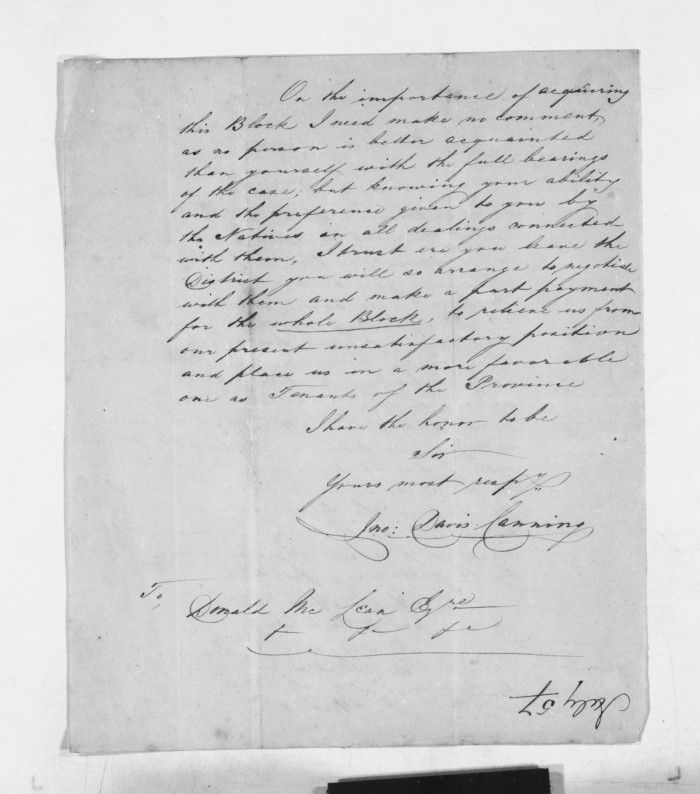 On the importance of acquiring
this Block I need make no comment
as no person is better acquainted
than yourself with the full bearings
of the case; but knowing your ability
and the preference given to you by
the Natives in all dealings connected
with them, I trust ere you leave the
District you will so arrange to negotiate
with them and make a part payment
for the whole Block, to relieve us from
our present unsatisfactory position
and place us in a more favorable
one as Tenants of the Province
I have the honor to be
Sir
Yours most respy
Jno: Davis Canning
To,
Donald Mc Lean Esqre
July 57